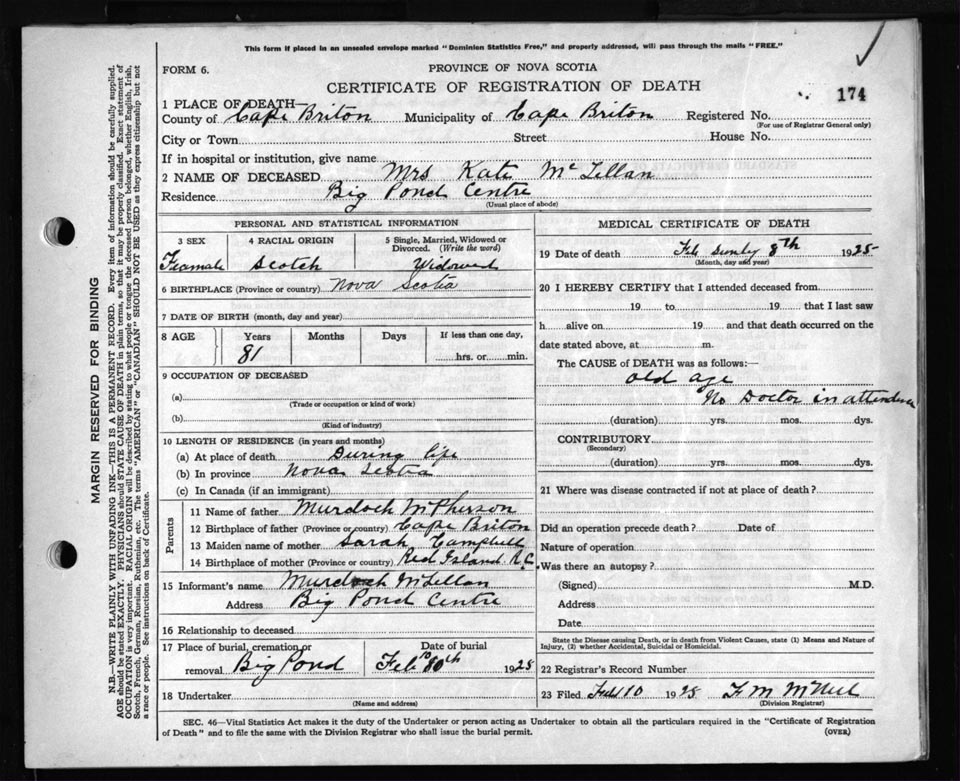 This form if placed in an unsealed envelope marked "Dominion Statistics Free," and properly addressed, will pass through the mails "FREE."
FORM 6.
PROVINCE OF NOVA SCOTIA
CERTIFICATE OF REGISTRATION OF DEATH
174
1 PLACE OF DEATH—
County of Cape Briton Municipality of Cape Briton Registered No.
(For use of Registrar General only)
City or Town Street House No.
If in hospital or institution, give name
2 NAME OF DECEASED Mrs Kate McLellan
Residence Big Pond Centre
(Usual place of abode)
PERSONAL AND STATISTICAL INFORMATION
3 SEX 4 RACIAL ORIGIN 5 Single, Married, Widowed or Divorced. (Write the word)
Feamale Scotch Widowed
6 BIRTHPLACE (Province or country) Nova Scotia
7 DATE OF BIRTH (month, day and year)
8 AGE Years Months Days If less than one day,
81 hrs. or min.
9 OCCUPATION OF DECEASED
(a)
(Trade or occupation or kind of work)
(b)
(Kind of industry)
10 LENGTH OF RESIDENCE (in years and months)
(a) At place of death During life
(b) In province Nova Scotia
(c) In Canada (if an immigrant)
Parents
11 Name of father Murdoch McPherson
12 Birthplace of father (Province or country) Cape Briton
13 Maiden name of mother Sarah Campbell
14 Birthplace of mother (Province or country) Red Island R.C.
15 Informant's name Murdoch McLellan
Address Big Pond Centre
16 Relationship to deceased
17 Place of burial, cremation or Date of burial
removal Big Pond Feb 10th 1925
18 Undertaker
(Name and address)
MEDICAL CERTIFICATE OF DEATH
19 Date of death Feb 8th 1925
(Month, day and year)
20 I HEREBY CERTIFY that I attended deceased from
19 to 19 that I last saw
h alive on 19 and that death occurred on the
date stated above, at m.
The CAUSE of DEATH was as follows:—
old age
No Doctor in attendence
(duration) yrs. mos. dys.
CONTRIBUTORY
(Secondary)
(duration) yrs. mos. dys.
21 Where was disease contracted if not at place of death?
Did an operation precede death? Date of
Nature of operation
Was there an autopsy?
(Signed) M.D.
Address
Date
State the Disease causing Death, or in death from Violent Causes, state (1) Means and Nature of
Injury, (2) whether Accidental, Suicidal or Homicidal.
22 Registrar's Record Number
23 Filed Feb 10 1925 F M McNeil
(Division Registrar)
SEC. 46—Vital Statistics Act makes it the duty of the Undertaker or person acting as Undertaker to obtain all the particulars required in the "Certificate of Registration
of Death" and to file the same with the Division Registrar who shall issue the burial permit.
(OVER)
MARGIN RESERVED FOR BINDING
N.B.—WRITE PLAINLY WITH UNFADING INK—THIS IS A PERMANENT RECORD. Every item of information should be carefully supplied.
AGE should be stated EXACTLY. PHYSICIANS should STATE CAUSE OF DEATH in plain terms, so that it may be properly classified. Exact statement of
OCCUPATION is very important. RACIAL ORIGIN will be described by stating to what people or tongue the deceased person belonged, whether English, Irish,
Scotch, French, German, Russian, Ruthenian, etc. The terms "AMERICAN" or "CANADIAN" SHOULD NOT BE USED as they express citizenship but not
a race or people. See instructions on back of Certificate.